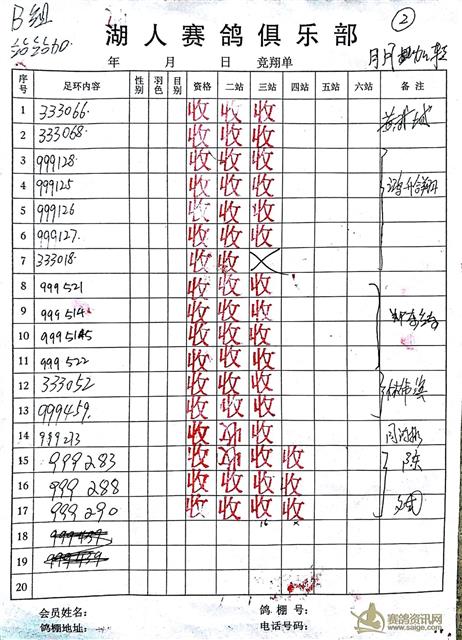 B组
②
湖人赛鸽俱乐部
年 月 日 竞翔单
序号 足环内容 性别 羽色 目别 资格 二站 三站 四站 五站 六站 备注
1 333066. 收 收 收
2 333068. 收 收 收
3 999128. 收 收 收
4 999125 收 收 收
5 999126 收 收 收
6 999127. 收 收 收
7 333018. 收 收 ×
8 999521 收 收 收
9 999514. 收 收 收
10 收 收 收
11 999522 收 收 收
12 333052 收 收 收
13 999459. 收 收 收
14 收 收 收
15 999283 收 收 收 收
16 999288 收 收 收 收
17 999290 收 收 收 收
18
19
20
会员姓名： 鸽棚号：
鸽棚地址： 电话号码：
赛鸽资讯网
www.saige.com